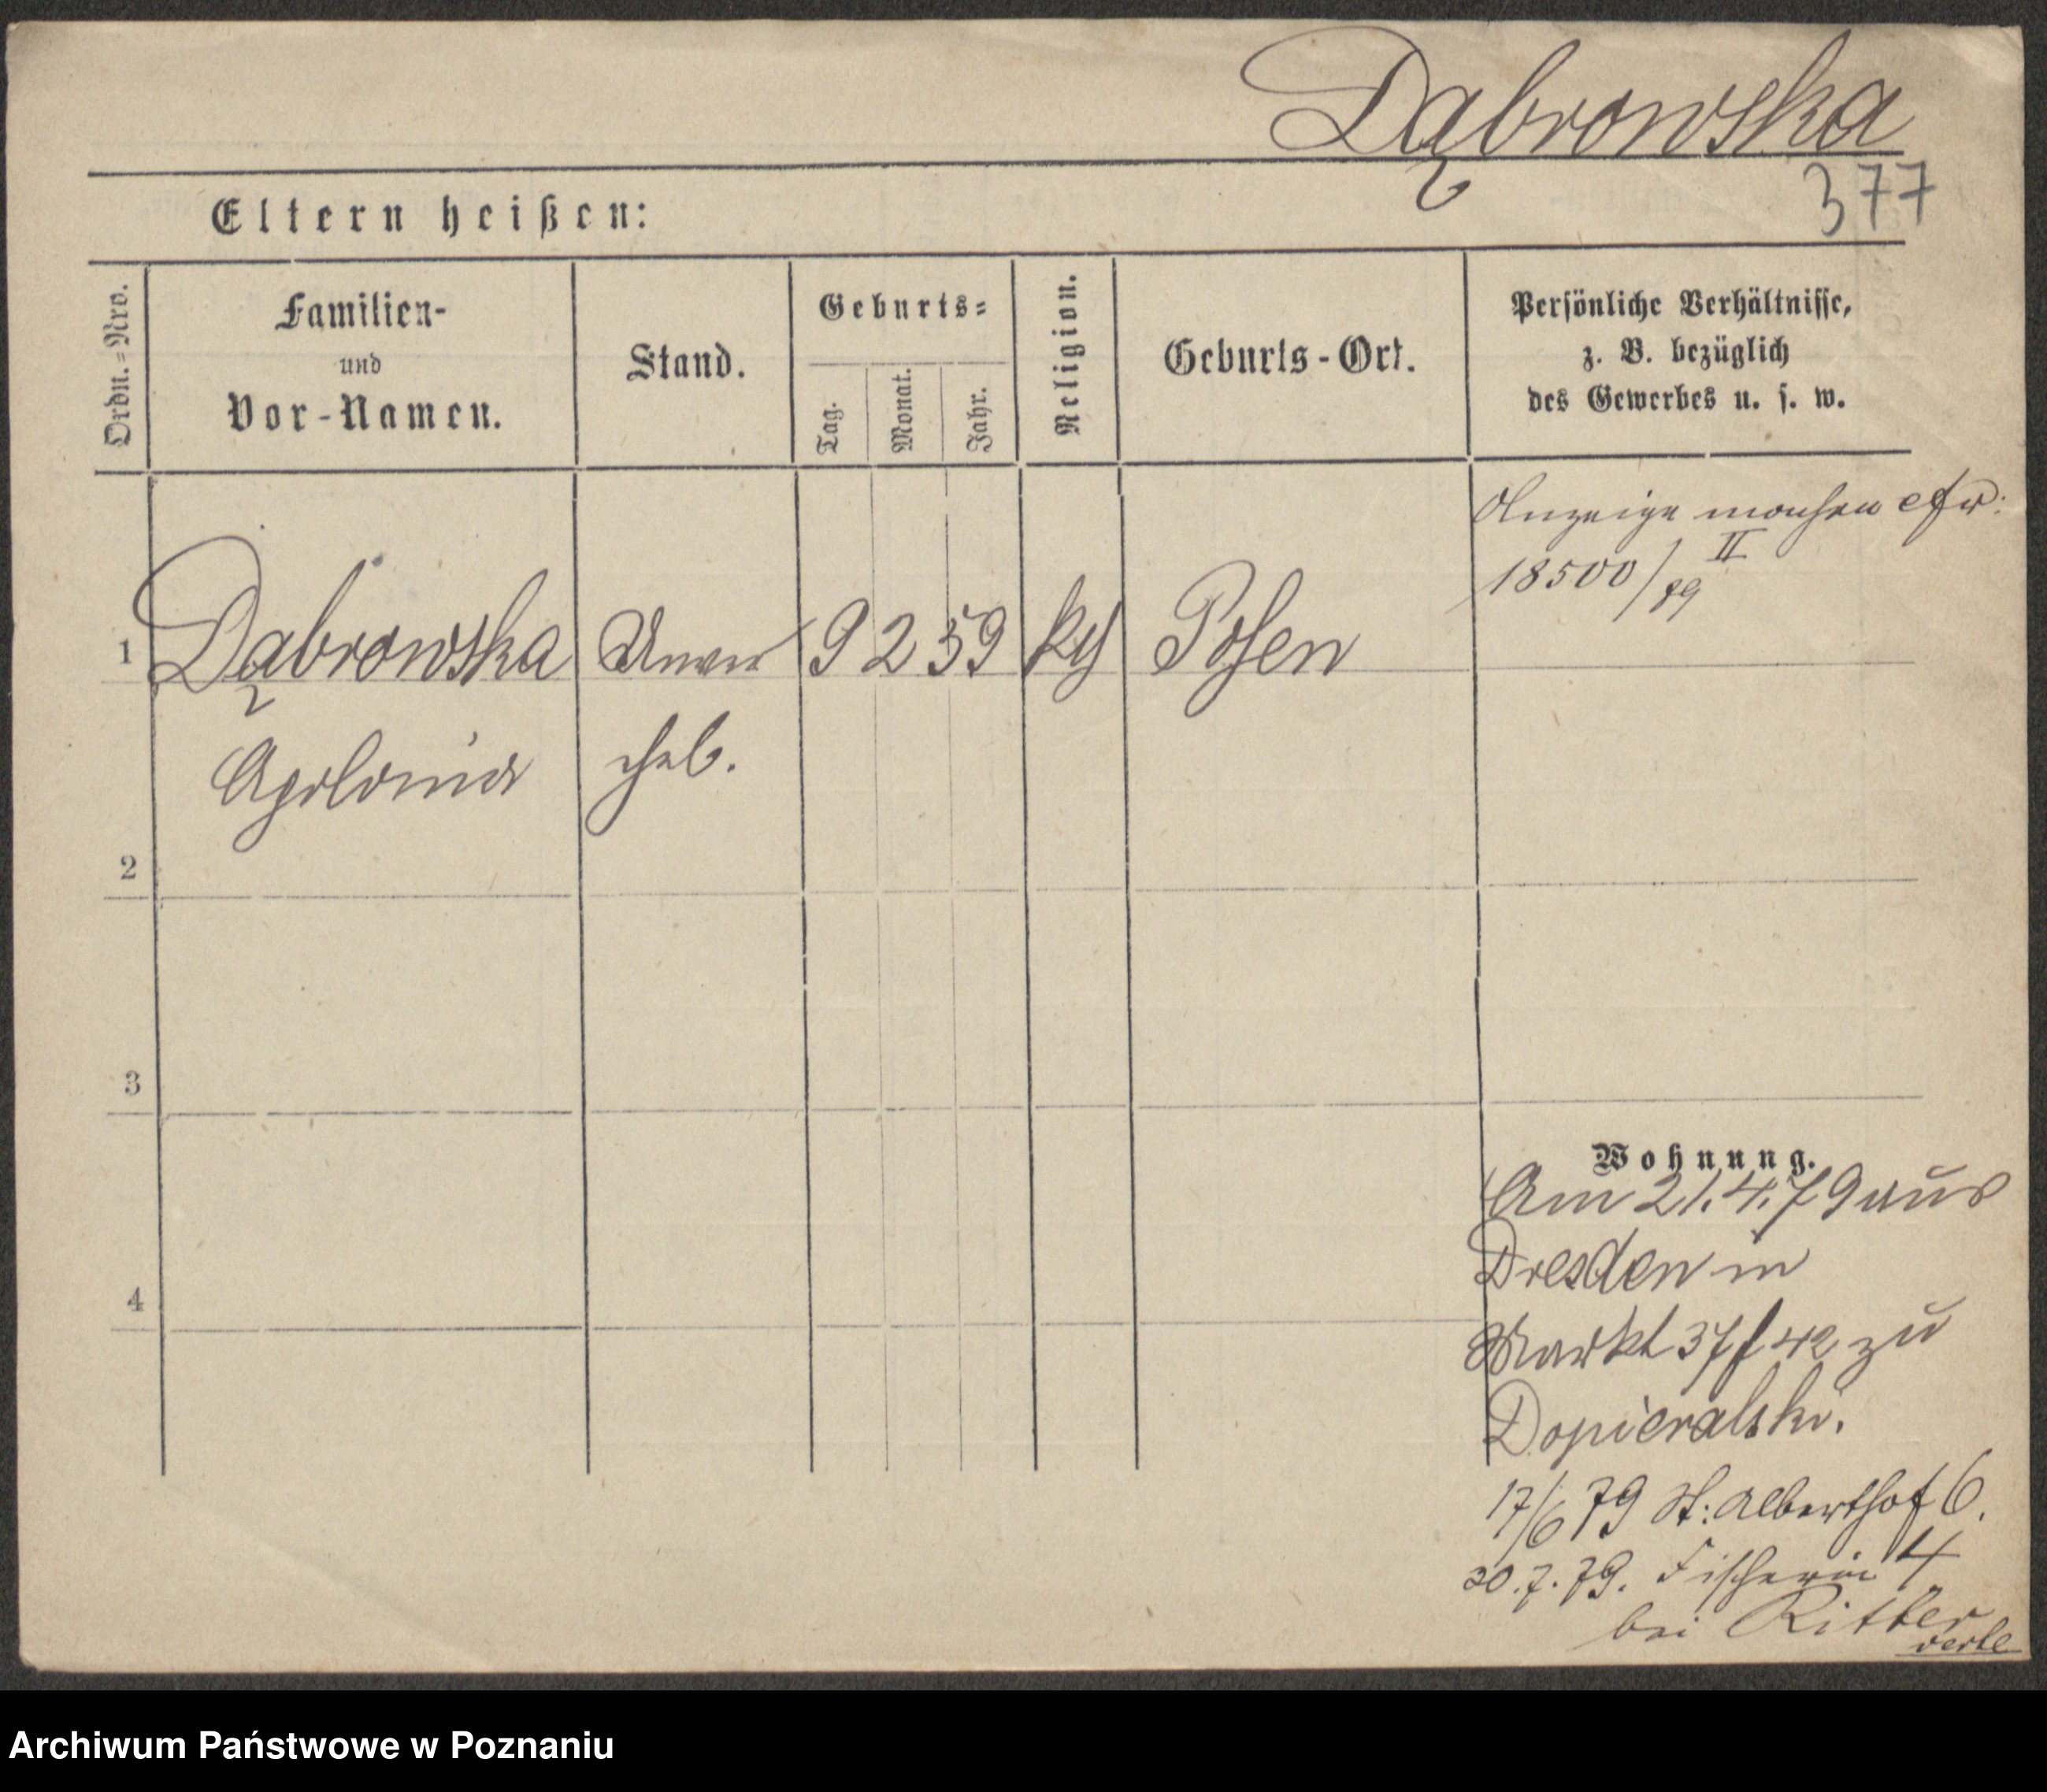 Dąbrowska
377
Eltern heißen:
Ordn.=Nro.
Familien-
und
Vor-Namen.
Stand.
Geburts=
Tag.
Monat.
Jahr.
Religion.
Geburts-Ort.
Persönliche Verhältnisse,
z. B. bezüglich
des Gewerbes u. s. w.
Anzeige machen cfr:
18500/79 II
1 Dąbrowska Unver 9 2 59 kth Posen
Apolonia ehel.
2
3
4
Wohnung.
Am 21.4.79 aus
Dresden in
Markt 37/42 zu
Dopieralski.
17/6 79 St: Alberthof 6.
20.7.79. Fischerei 4
bei Ritter
verte
Archiwum Państwowe w Poznaniu